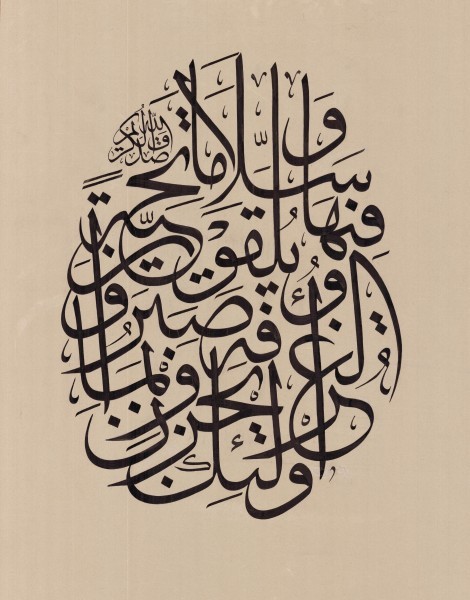 أولئك يجزون
الغرفة بما صبروا
ويلقون فيها تحية
وسلاما
صدق الله الكريم